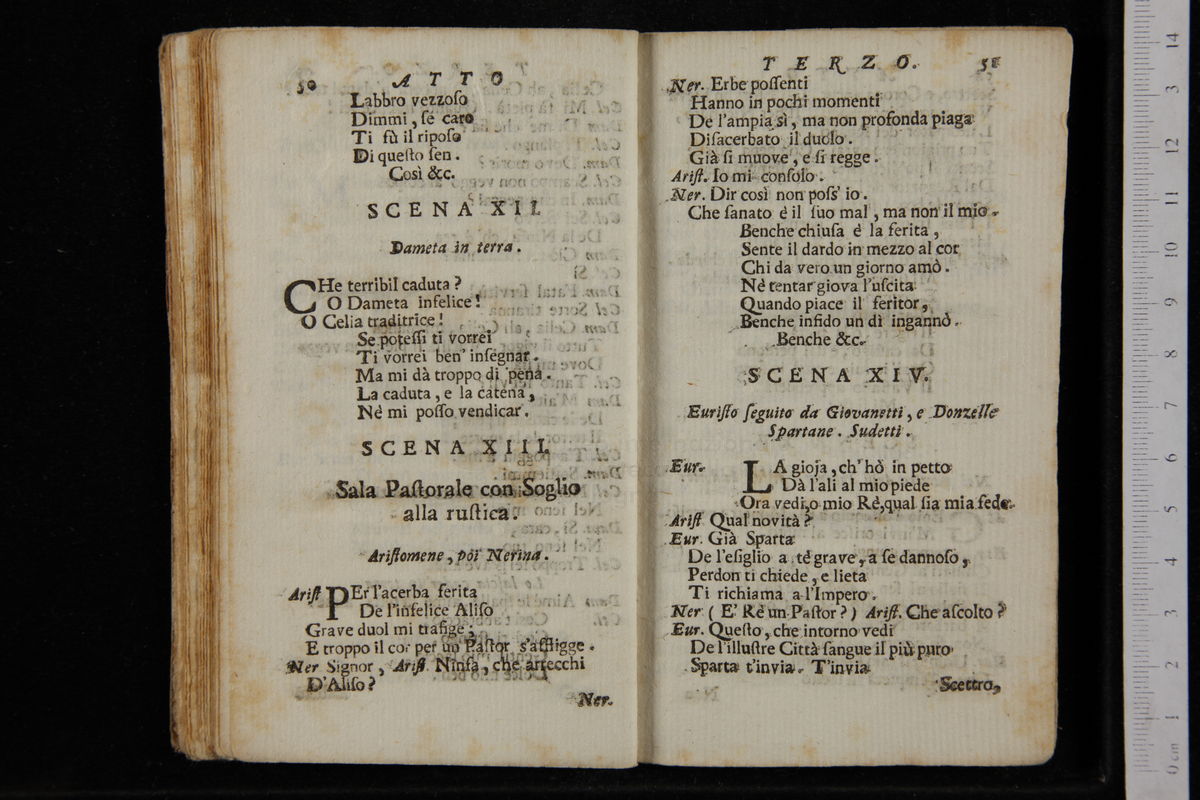 50 ATTO
Labbro vezzoſo
Dimmi, ſe caro
Ti fù il ripoſo
Di queſto ſen.
Così &c.
SCENA XII.
Dameta in terra.
CHe terribil caduta?
O Dameta infelice!
O Celia traditrice!
Se poteſſi ti vorrei
Ti vorrei ben' inſegnar.
Ma mi dà troppo di pena.
La caduta, e la catena,
Nè mi poſſo vendicar.
SCENA XIII.
Sala Paſtorale con Soglio
alla ruſtica.
Ariſtomene, poi Nerina.
Ariſt PEr l'acerba ferita
De l'infelice Aliſo
Grave duol mi trafige;
E troppo il cor per un Paſtor s'affligge.
Ner Signor, Ariſt. Ninfa, che arrecchi
D'Aliſo?
Ner.
TERZO. 51
Ner. Erbe poſſenti
Hanno in pochi momenti
De l'ampia sì, ma non profonda piaga
Diſacerbato il duolo.
Già ſi muove, e ſi regge.
Ariſt. Io mi conſolo.
Ner. Dir così non poſs' io.
Che ſanato è il ſuo mal, ma non il mio.
Benche chiuſa è la ferita,
Sente il dardo in mezzo al cor
Chi da vero un giorno amò.
Nè tentar giova l'uſcita
Quando piace il feritor,
Benche infido un dì ingannò.
Benche &c.
SCENA XIV.
Euriſto ſeguito da Giovanetti, e Donzelle
Spartane. Sudetti.
Eur. LA gioja, ch' hò in petto
Dà l'ali al mio piede
Ora vedi, o mio Rè, qual ſia mia fede.
Ariſt Qual novità?
Eur. Già Sparta
De l'eſiglio a tè grave, a ſe dannoſo,
Perdon ti chiede, e lieta
Ti richiama a l'Impero.
Ner (E' Rè un Paſtor?) Ariſt. Che aſcolto?
Eur. Queſto, che intorno vedi
De l'illuſtre Città ſangue il più puro
Sparta t'invia. T'invia
Scettro,